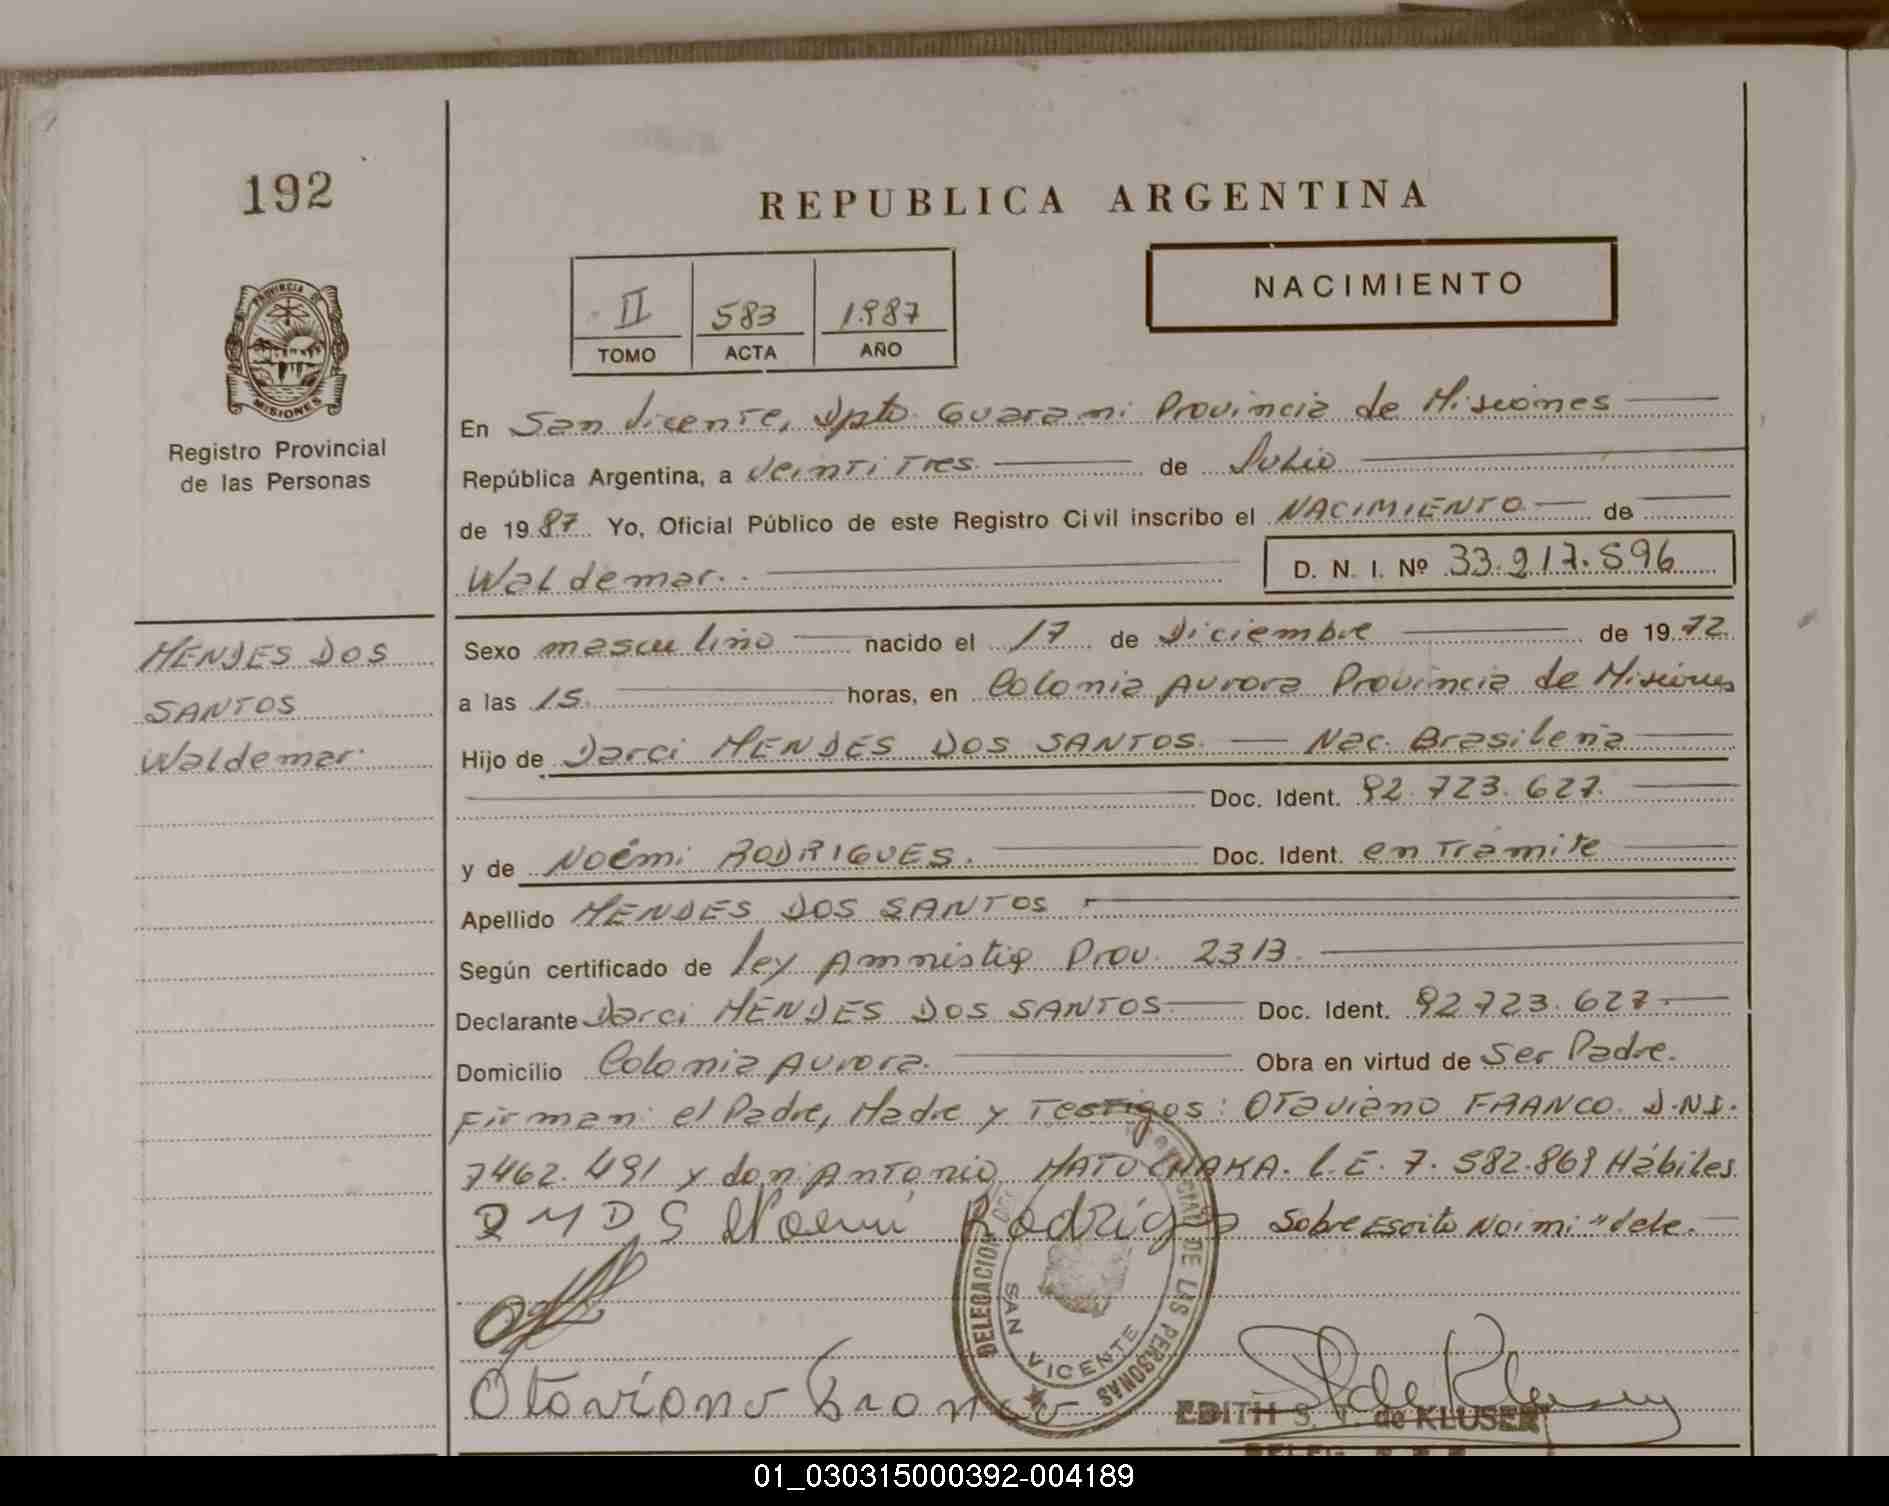 192
REPUBLICA ARGENTINA
NACIMIENTO
II 583 1987
TOMO ACTA AÑO
PROVINCIA DE MISIONES
Registro Provincial
de las Personas
En San Vicente, Dpto. Guarani Provincia de Misiones
República Argentina, a Veinti Tres de Julio
de 1987 Yo, Oficial Público de este Registro Civil inscribo el NACIMIENTO de
Waldemar.
D. N. I. Nº 33.217.596
MENDES DOS
SANTOS
Waldemar
Sexo masculino nacido el 17 de Diciembre de 1972
a las 15 horas, en Colonia Aurora Provincia de Misiones
Hijo de Darci MENDES DOS SANTOS. Nac. Brasileña
Doc. Ident. 92.723.627.
y de Noémi RODRIGUES. Doc. Ident. en Tramite
Apellido MENDES DOS SANTOS
Según certificado de ley Amnistia Prov. 2313.
Declarante Darci MENDES DOS SANTOS Doc. Ident. 92.723.627.
Domicilio Colonia Aurora. Obra en virtud de Ser Padre.
Firman: el Padre, Madre y Testigos: Otaviano FRANCO. D.N.I.
7462.491 y don Antonio MATUCHAKA. L.E. 7.582.869 Hábiles
D M D S Noemi Rodrigues Sobre Escrito Noimi "Vale.
DELEGACION DEL REGISTRO PROVINCIAL DE LAS PERSONAS
SAN VICENTE
Otaviano Franco
EDITH S. T. de KLUSER
01_030315000392-004189